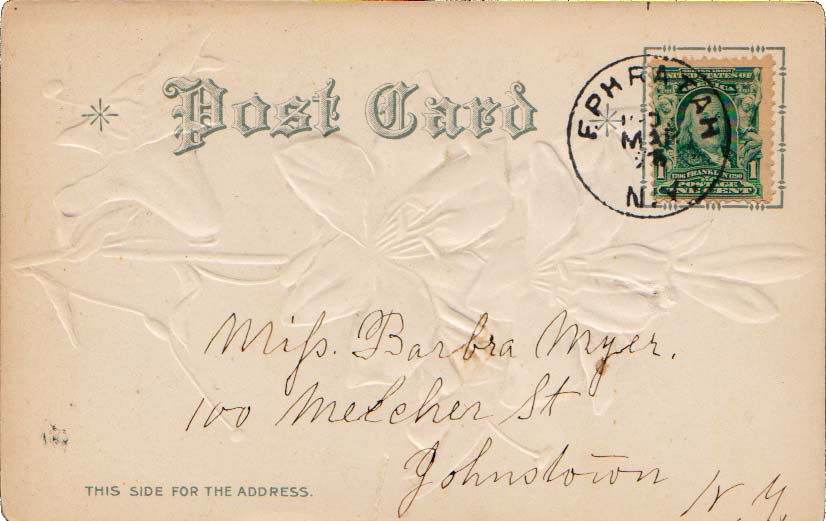 Post Card
EPHRATAH
MAY
N.Y.
UNITED STATES OF
AMERICA
1 1706 FRANKLIN 1790 1
POSTAGE
ONE CENT
Miss. Barbra Myer.
100 Melcher St
Johnstown
N.Y.
THIS SIDE FOR THE ADDRESS.